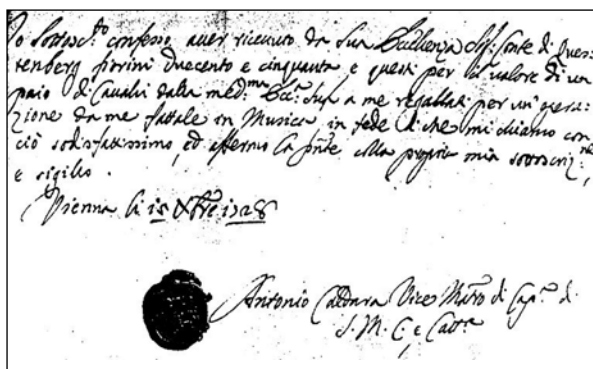 Io Sottoscto confesso aver riceuuto da Sua Eccellenza Sigr Conte di Ques:
tenberg fiorini Duecento e cinquanta e questi per il valore di un
paio di Cavalli dalla medma Ecca Sua a me regallati per un' opera:
zione da me fattale in Musica, in fede di che mi chiamo con
ciò sodisfattissimo, ed affermo la pnte colla propria mia sottoscrizne
e sigillo.
Vienna li 15 Xbre 1728
Antonio Caldara Vice Mrō di Capa di
S. M. C. e Catca